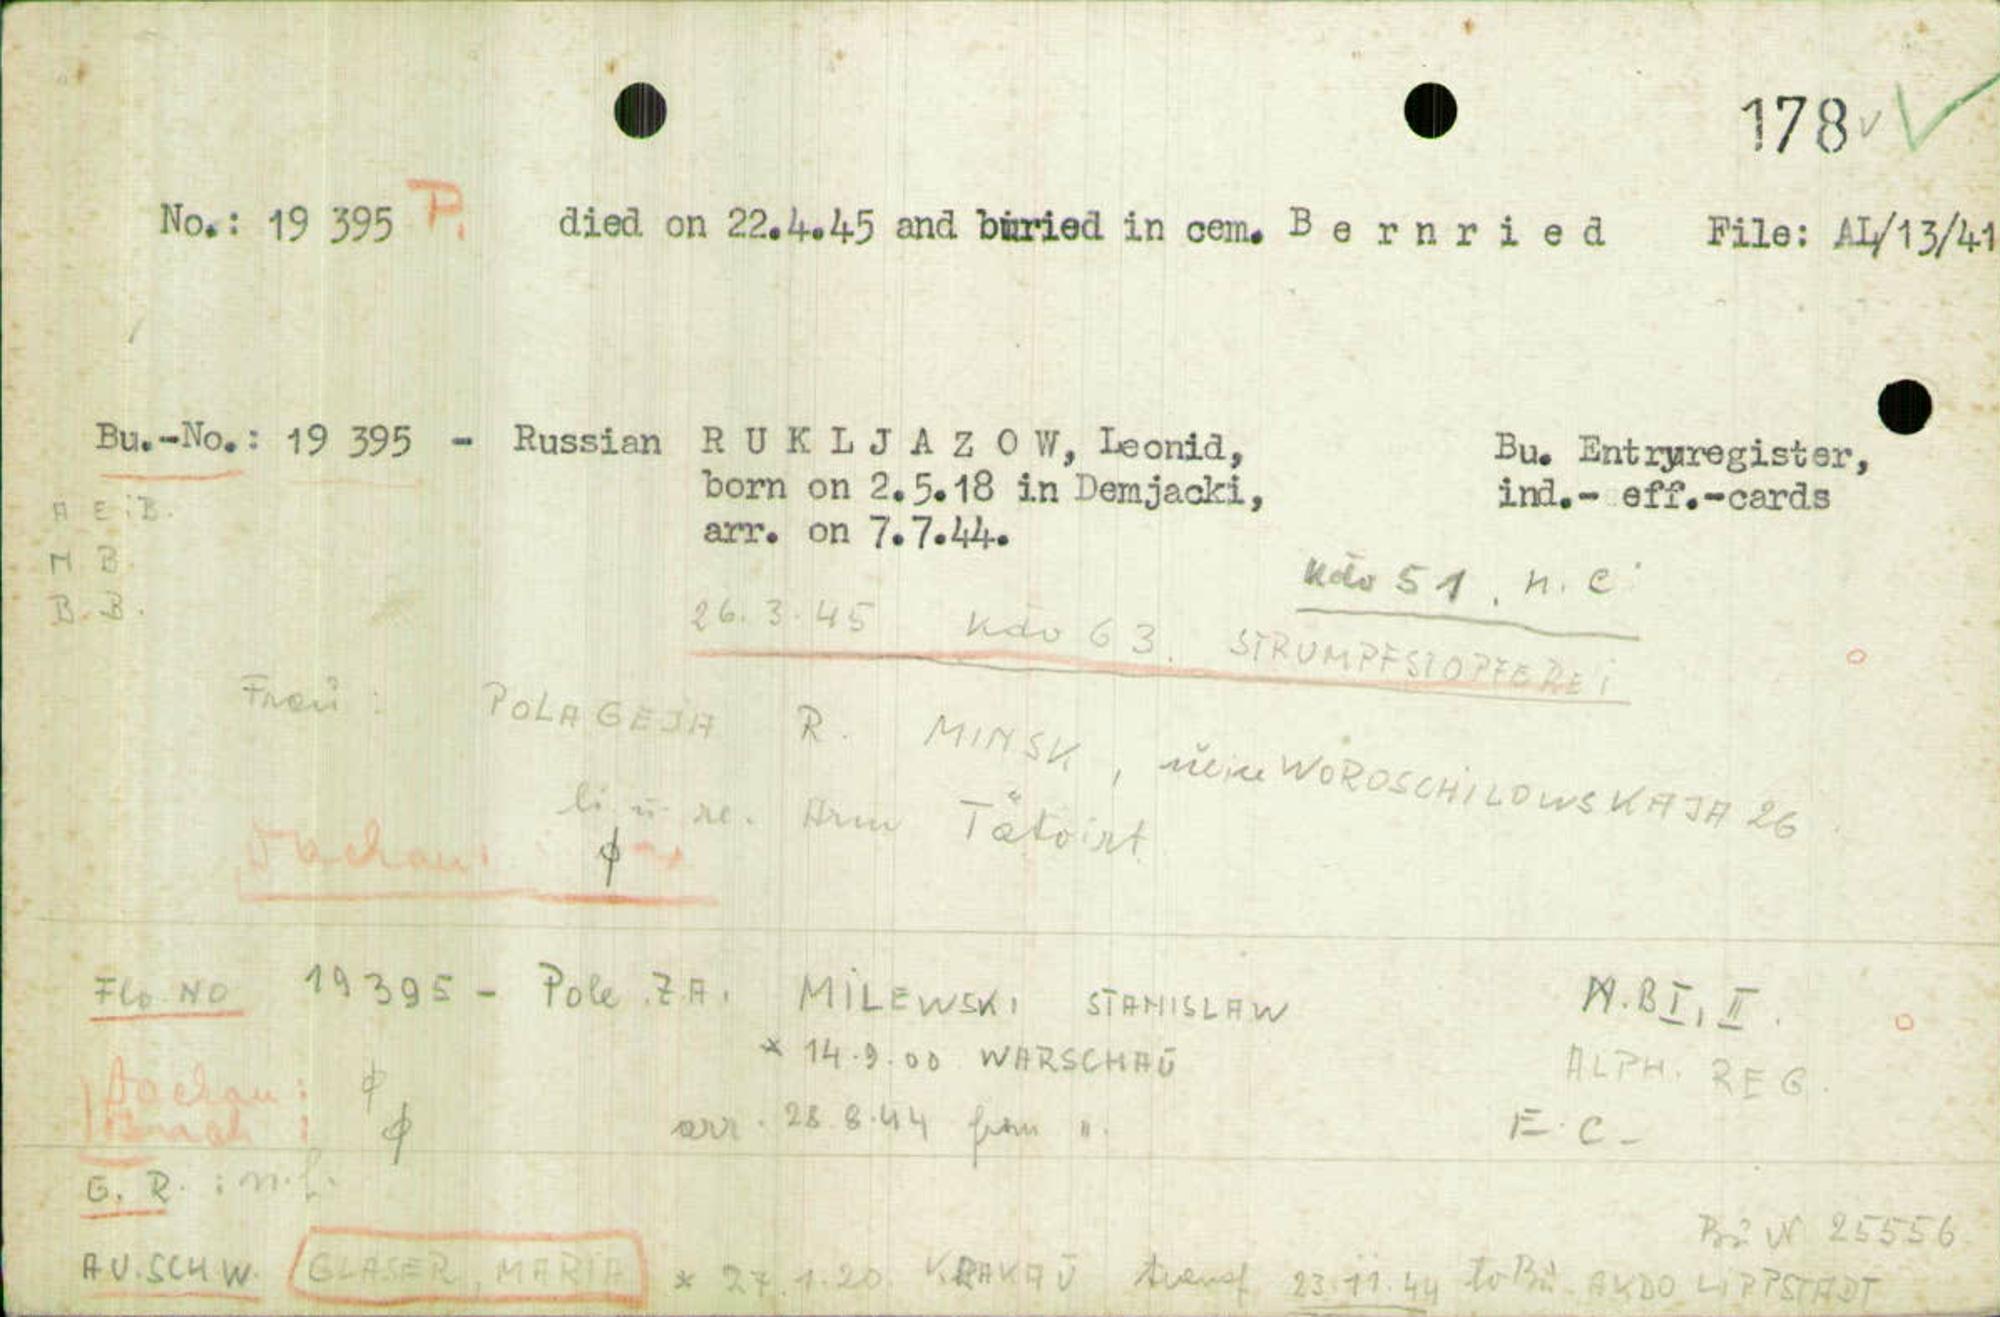 178 v
No.: 19 395 P. died on 22.4.45 and buried in cem. B e r n r i e d File: AL/13/41
Bu.-No.: 19 395 - Russian R U K L J A Z O W, Leonid, Bu. Entryregister,
born on 2.5.18 in Demjacki, ind.- eff.-cards
arr. on 7.7.44.
A E.B.
M B
B.B.
Kdo 51, n. C
26.3.45 Kdo 63. STRUMPFSTOPFEREI
Frau: POLAGEJA R. MINSK, WOROSCHILOWSKAJA 26
li u re. Arm Tätoirt
Dachau: ϕ
Flo NO 19395 - Pole Z.A. MILEWSKI STANISLAW M.B I, II.
* 14.9.00 WARSCHAU ALPH. REG.
Dachau: ϕ
arr. 28.8.44 from ". E.C-
ϕ
G.R.: n.f.
Bu N 25556
AU.SCHW. GLASER, MARIA * 27.1.20 KRAKAU transf 23.11.44 to Bu. AKDO LIPPSTADT